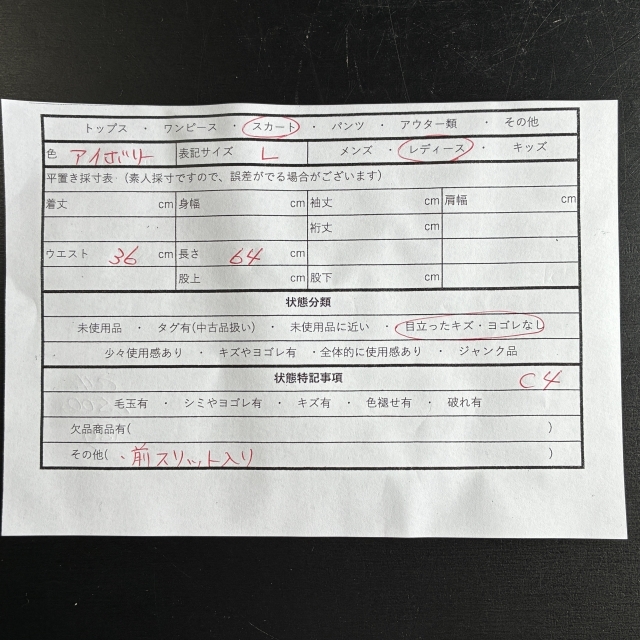 トップス ・ ワンピース ・ スカート ・ パンツ ・ アウター類 ・ その他
色 アイボリー 表記サイズ L メンズ ・ レディース ・ キッズ
平置き採寸表 (素人採寸ですので、誤差がでる場合がございます)
着丈 cm 身幅 cm 袖丈 cm 肩幅 cm
裄丈 cm
ウエスト 36 cm 長さ 64 cm
股上 cm 股下 cm
状態分類
未使用品 ・ タグ有(中古品扱い) ・ 未使用品に近い ・ 目立ったキズ・ヨゴレなし
少々使用感あり ・ キズやヨゴレ有 ・全体的に使用感あり ・ ジャンク品
状態特記事項 C4
毛玉有 ・ シミやヨゴレ有 ・ キズ有 ・ 色褪せ有 ・ 破れ有
欠品商品有( )
その他( ・前スリット入り )